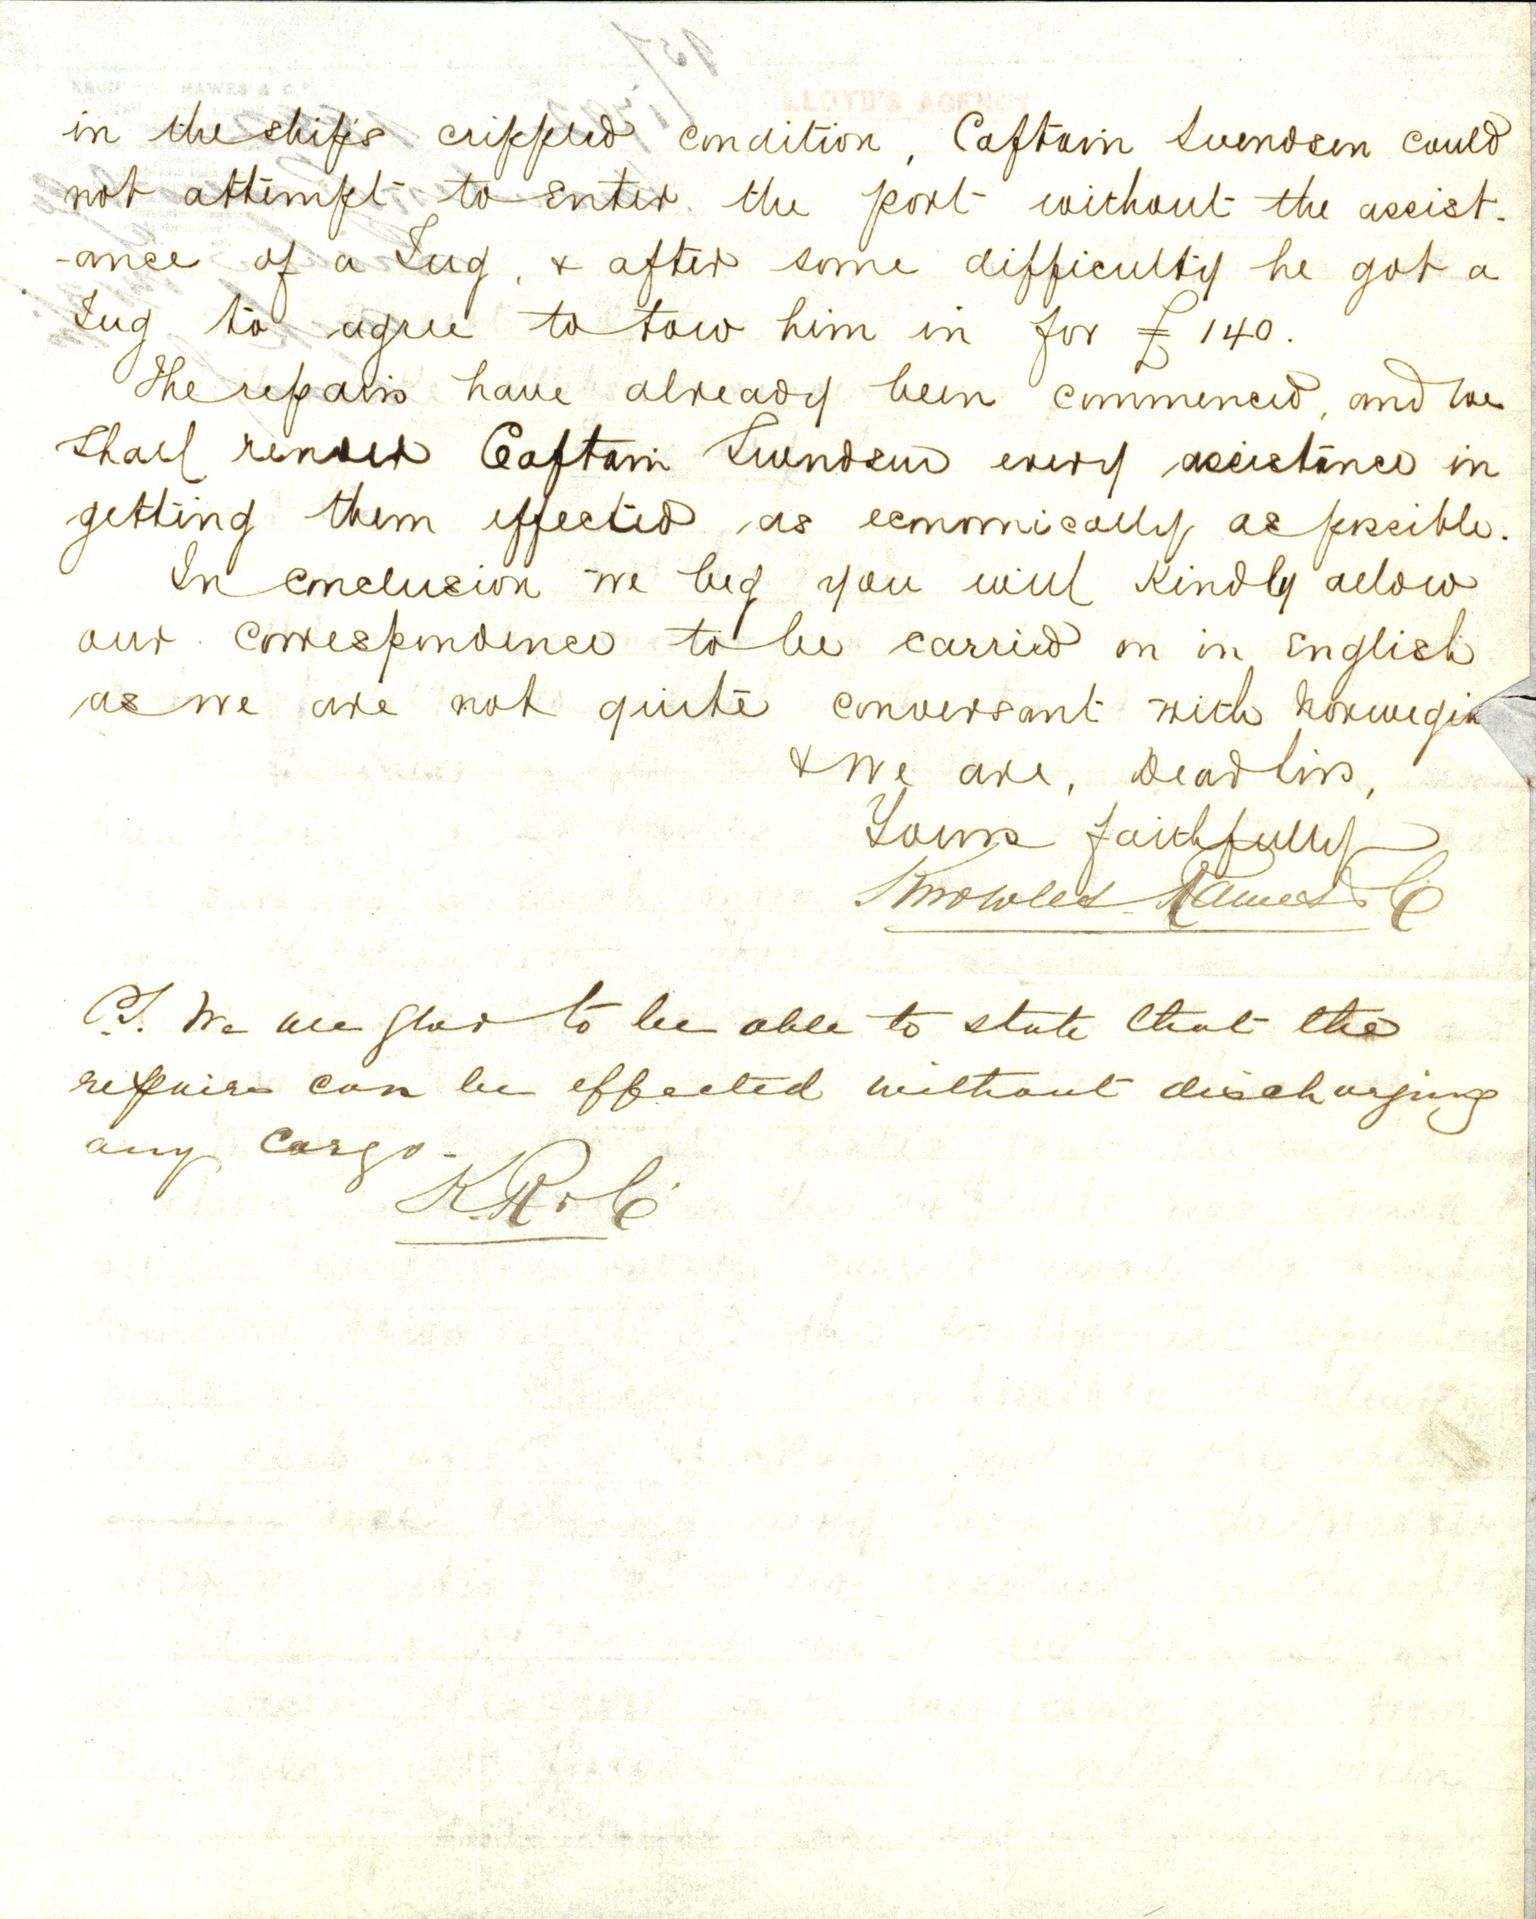 in the ship's crippled condition, Captain Svendsen could
not attempt to enter the port without the assist-
-ance of a Tug, & after some difficulty he got a
Tug to agree to tow him in for £140.
The repairs have already been commenced, and we
shall render Captain Svendsen every assistance in
getting them effected as economically as possible.
In conclusion we beg you will kindly allow
our correspondence to be carried on in English
as we are not quite conversant with Norwegian
& we are, Dear Sirs,
Yours faithfully
Knowles Hawes & Co
P.S. We are glad to be able to state that the
repairs can be effected without discharging
any cargo.
K. H & Co